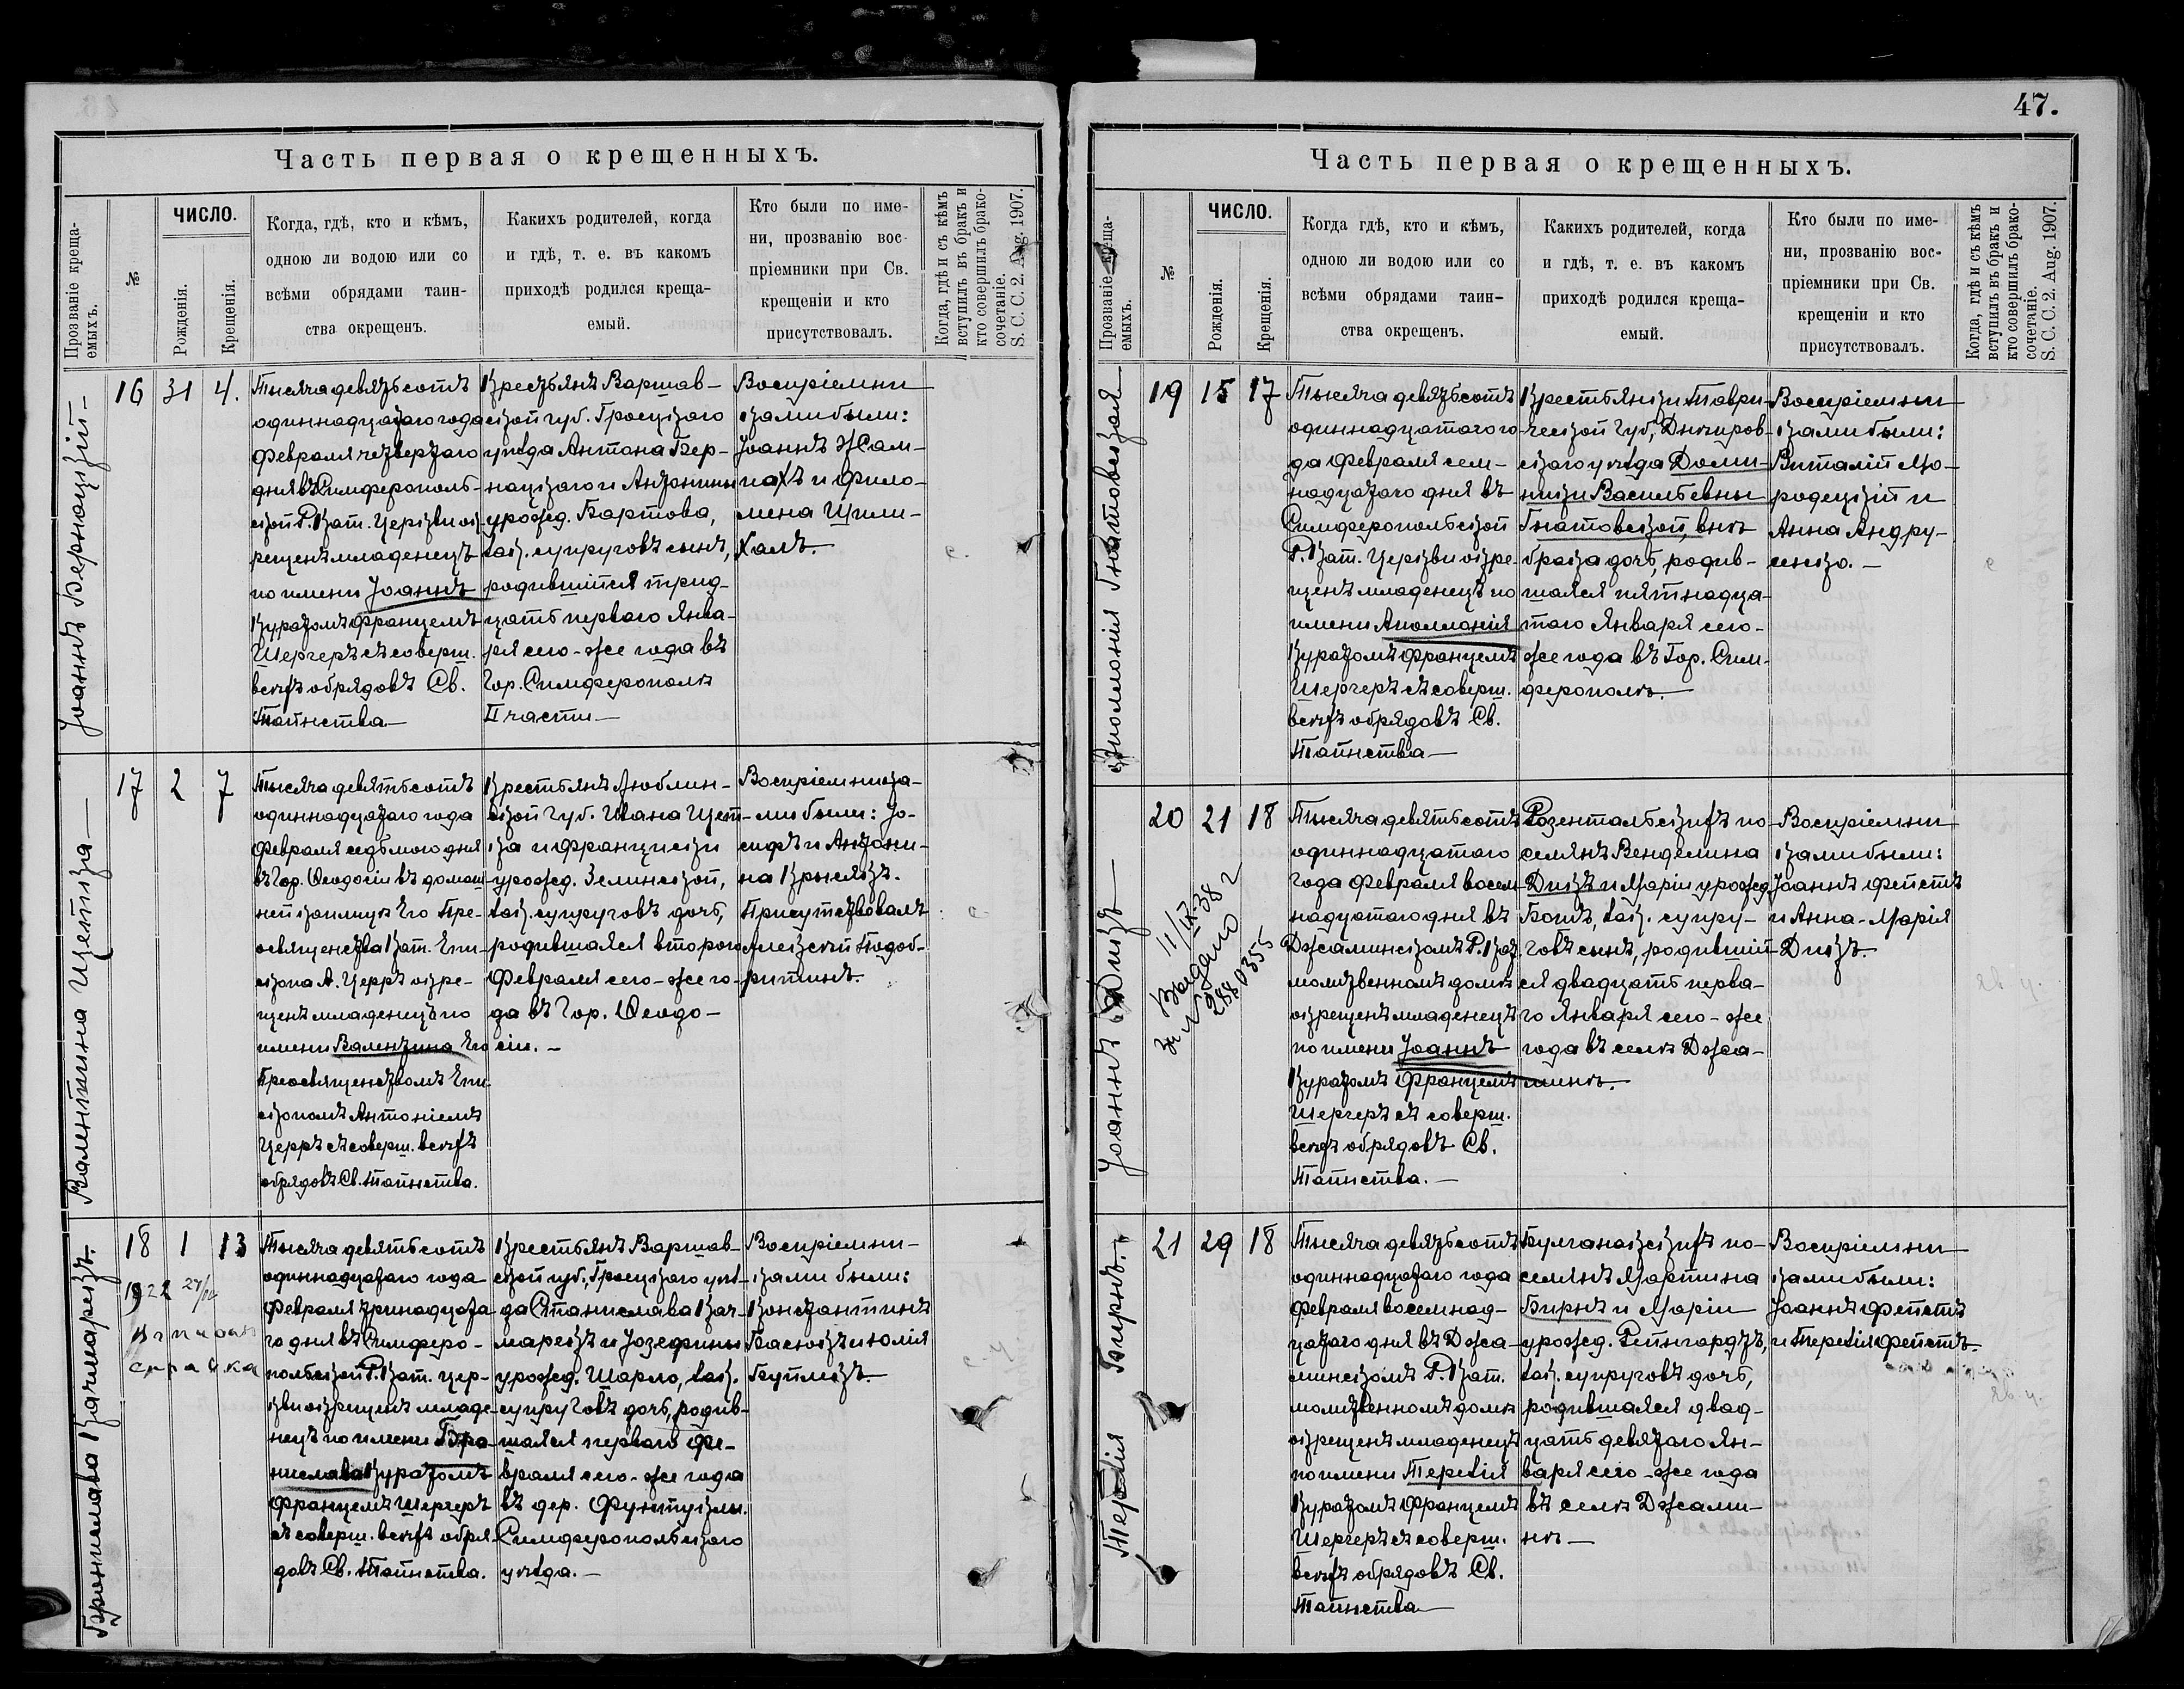 Часть первая о крещенныхъ.
Прозваніе креща-
емыхъ.
№
ЧИСЛО.
Рожденія.
Крещенія.
Когда, гдѣ, кто и кѣмъ,
одною ли водою или со
всѣми обрядами таин-
ства окрещенъ.
Какихъ родителей, когда
и гдѣ, т. е. въ какомъ
приходѣ родился креща-
емый.
Кто были по име-
ни, прозванію вос-
пріемники при Св.
крещеніи и кто
присутствовалъ.
Когда, гдѣ и съ кѣмъ
вступилъ въ бракъ и
кто совершилъ брако-
сочетаніе.
S. C. C. 2. Aug. 1907.
Іоаннъ Бернацкій
16
31
4.
Тысяча девятьсотъ
одиннадцатаго года
Февраля четвертаго
дня въ Симферополь-
ской Р. Кат. Церкви ок-
рещенъ младенецъ
по имени Іоаннъ
Куратомъ Францемъ
Шерчеръ съ соверш.
всѣхъ обрядовъ Св.
Таинства
Крестьянъ Варшав-
ской губ. Гроецкаго
уѣзда Антона Бер-
нацкаго и Антонины
урожд. Бартова,
зак. супруговъ сынъ,
родившійся трид-
цать перваго Янва-
ря сего-же года въ
Гор. Симферополѣ
II части
Воспріемни-
ками были:
Іоаннъ Жам-
пахъ и Фило-
мена Щипи-
халъ.
Валентина Щетка
17
2
7
Тысяча девятьсотъ
одиннадцатаго года
Февраля седьмого дня
въ Гор. Ѳеодосіи въ домаш-
ней каплицѣ Его Пре-
освященства Кат. Епи-
скопа А. Церръ окре-
щенъ младенецъ по
имени Валентина Его
Преосвященствомъ Епи-
скопомъ Антоніемъ
Церръ съ соверш. всѣхъ
обрядовъ Св. Таинства.
Крестьянъ Люблин-
ской Губ. Ивана Щет-
ка и Франциски
урожд. Зелинской,
зак. супруговъ дочь,
родившаяся второго
Февраля сего-же го-
да въ Гор. Ѳеодо-
сіи.
Воспріемника-
ми были: Іо-
сифъ и Антони-
на Крысякъ.
Присутствовалъ
Алексѣй Подоб-
ритинъ.
Бронислава Качмарекъ.
18
1
13
1922 27/IV
справка
Тысяча девятьсотъ
одиннадцатаго года
Февраля тринадцата-
го дня въ Симферо-
польской Р. Кат. цер-
кви окрещенъ младе-
нецъ по имени Бро-
нислава Куратомъ
Францемъ Шерчеръ
съ соверш. всѣхъ обря-
довъ Св. Таинства.
Крестьянъ Варшав-
ской губ. Гроецкаго уѣз-
да Станислава Кач-
марекъ и Іозефины
урожд. Шарло, зак.
супруговъ дочь, родив-
шаяся перваго Фе-
враля сего-же года
въ дер. Фунтуклы.
Симферопольскаго
уѣзда.
Воспріемни-
ками были:
Константинъ
Басюкъ и Юлія
Буплекъ.
47.
Часть первая о крещенныхъ.
Прозваніе креща-
емыхъ.
№
ЧИСЛО.
Рожденія.
Крещенія.
Когда гдѣ, кто и кѣмъ,
одною ли водою или со
всѣми обрядами таин-
ства окрещенъ.
Какихъ родителей, когда
и гдѣ, т. е. въ какомъ
приходѣ родился креща-
емый.
Кто были по име-
ни, прозванію вос-
пріемники при Св.
крещеніи и кто
присутствовалъ.
Когда, гдѣ и съ кѣмъ
вступилъ въ бракъ и
кто совершилъ брако-
сочетаніе.
S. C. C. 2. Aug. 1907.
Аполлонія Гнатовская
19
15
17
Тысяча девятьсотъ
одиннадцатаго го-
да Февраля сем-
надцатаго дня въ
Симферопольской
Р. Кат. Церкви окре-
щенъ младенецъ по
имени Аполлонія
Куратомъ Францемъ
Шерчеръ съ соверш.
всѣхъ обрядовъ Св.
Таинства
Крестьянки Таври-
ческой Губ. Днѣпров-
скаго уѣзда Доми-
ники Васильевны
Гнатовской, внѣ
брака дочь, родив-
шаяся пятнадца-
таго Января сего-
же года въ Гор. Сим-
ферополѣ.
Воспріемни-
ками были:
Виталій Мо-
родецкій и
Анна Андру-
сенко.
Іоаннъ Дикъ
20
21
18
11/IX 38 г
Выдано
за № 288035
Тысяча девятьсотъ
одиннадцатаго
Года Февраля восем-
надцатаго дня въ
Джаминскомъ Р. Кат.
молитвенномъ домѣ
окрещенъ младенецъ
по имени Іоаннъ
Куратомъ Францемъ
Шерчеръ съ соверш.
всѣхъ обрядовъ Св.
Таинства.
Розентальскихъ по-
селянъ Венделина
Дикъ и Маріи урожд.
Бошъ, зак. супру-
говъ сынъ, родившій-
ся двадцать перва-
го Января сего-же
года въ селѣ Джа-
минѣ.
Воспріемни-
ками были:
Іоаннъ Фейстъ
и Анна-Марія
Дикъ.
Терезія Бирнъ.
21
29
18
Тысяча девятьсотъ
одиннадцатаго года
Февраля восемнад-
цатаго дня въ Джа-
минскомъ Р. Кат.
молитвенномъ домѣ
окрещенъ младенецъ
по имени Терезія
Куратомъ Францемъ
Шерчеръ съ соверш.
всѣхъ обрядовъ Св.
Таинства
Булганакскихъ по-
селянъ Мартина
Бирнъ и Маріи
урожд. Рейнгардтъ,
зак. супруговъ дочь,
родившаяся двад-
цать девятаго Ян-
варя сего-же года
въ селѣ Джами-
нѣ
Воспріемни-
ками были:
Іоаннъ Фейстъ
и Терезія Фейстъ.